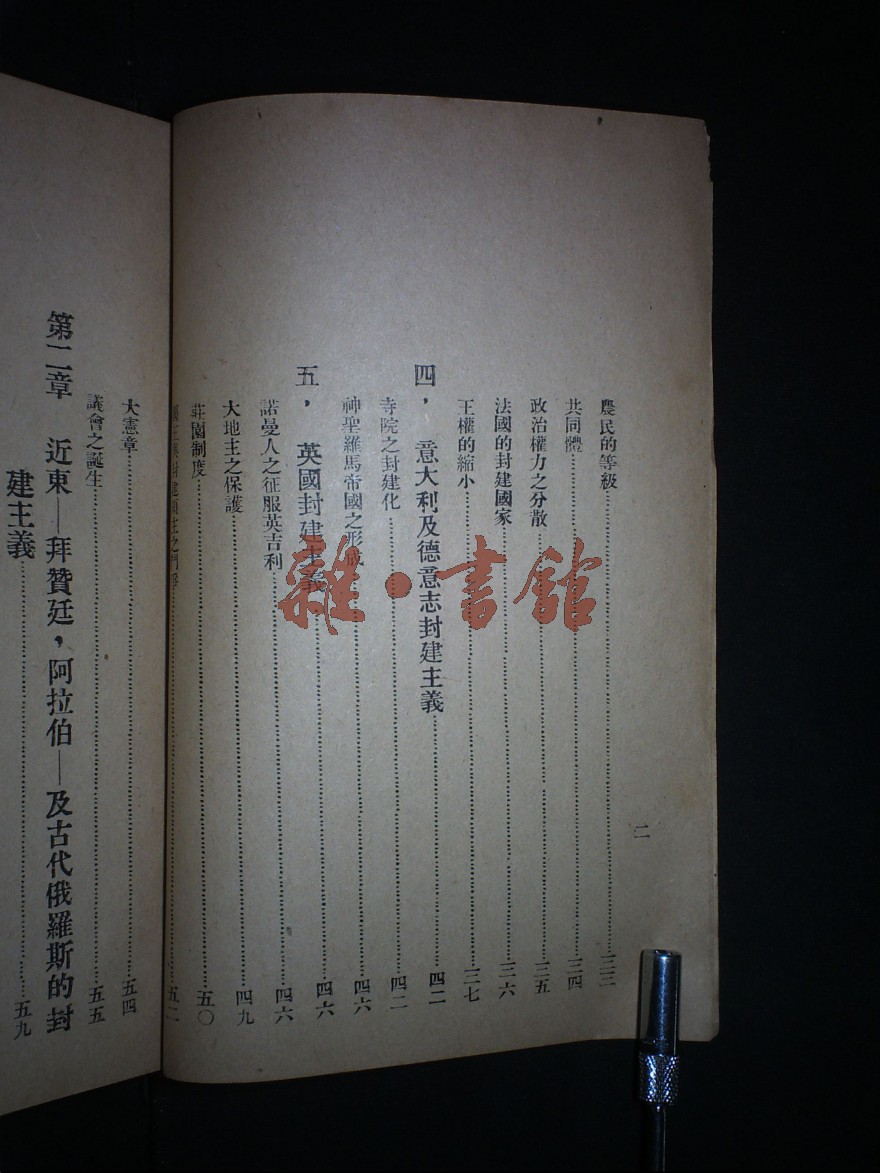 二
農民的等級三三
共同體三四
政治權力之分散三五
法國的封建國家三六
王權的縮小三七
四，意大利及德意志封建主義四二
寺院之封建化四二
神聖羅馬帝國之形成四六
五，英國封建主義四六
諾曼人之征服英吉利四六
大地主之保護四九
莊園制度五〇
封建領主之五二
大憲章五四
議會之誕生五五
第二章 近東—拜贊廷，阿拉伯—及古代俄羅斯的封
建主義五九
雜·書館